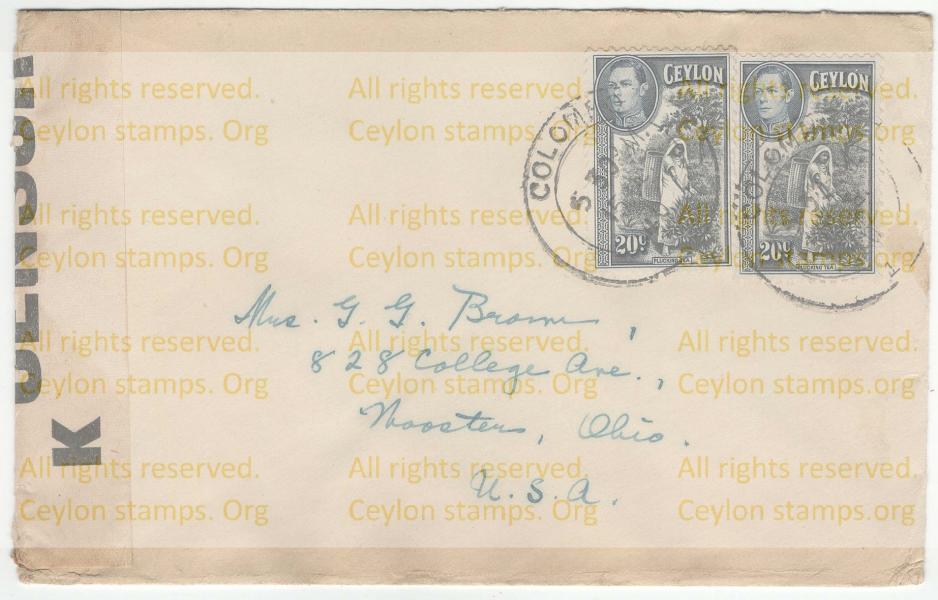 CEYLON
20c
PLUCKING TEA
CEYLON
20c
PLUCKING TEA
COLOM
Mrs. G. G. Brown,
828 College Ave.,
Wooster, Ohio.
U. S. A.
K
All rights reserved. All rights reserved. All rights reserved.
Ceylon stamps. Org Ceylon stamps. Org Ceylon stamps. Org
All rights reserved. All rights reserved. All rights reserved.
Ceylon stamps. Org Ceylon stamps. Org Ceylon stamps. Org
All rights reserved. All rights reserved. All rights reserved.
Ceylon stamps. Org Ceylon stamps. Org Ceylon stamps. Org
All rights reserved. All rights reserved. All rights reserved.
Ceylon stamps. Org Ceylon stamps. Org Ceylon stamps. Org